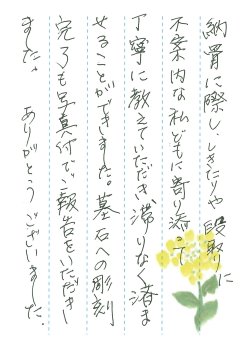 納骨に際し、しきたりや段取りに
不案内な私どもに寄り添って
丁寧に教えていただき滞りなく済ま
せることができました。墓石への彫刻
完了も写真付でご報告をいただき
ました。ありがとうございました。